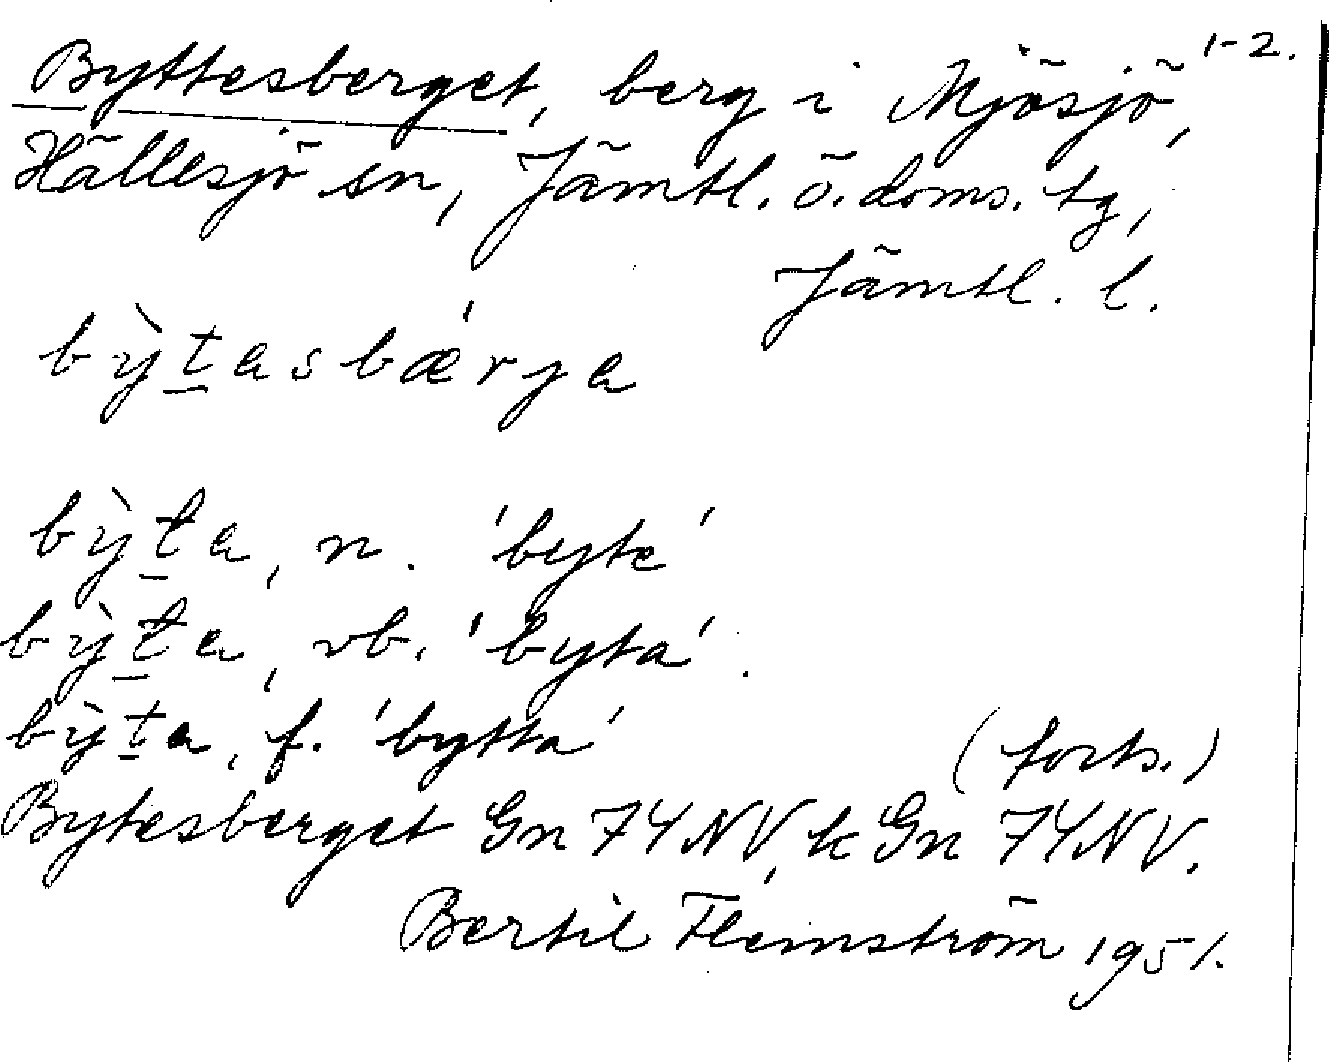 Byttesberget, berg i Mjösjö, 1-2.
Hällesjö sn, Jämtl. ö. doms. tg,
Jämtl. l.
bỳt̲asbǽrja
bỳt̲a, n. 'byte'
bỳt̲a, vb. 'byta'.
bỳt̲a, f. 'bytta' (forts.)
Bytesberget Gn 74NV, k Gn 74NV.
Bertil Flemström 1951.